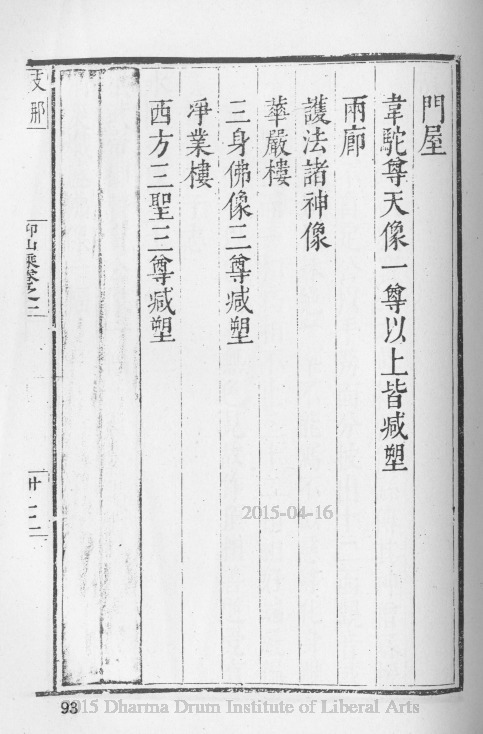 門屋
韋駝尊天像一尊以上皆臧塑
兩廊
護法諸神像
華嚴樓
三身佛像三尊臧塑
淨業樓
西方三聖三尊臧塑
支那
仰山乘卷之二
廿二
2015-04-16
93
2015 Dharma Drum Institute of Liberal Arts